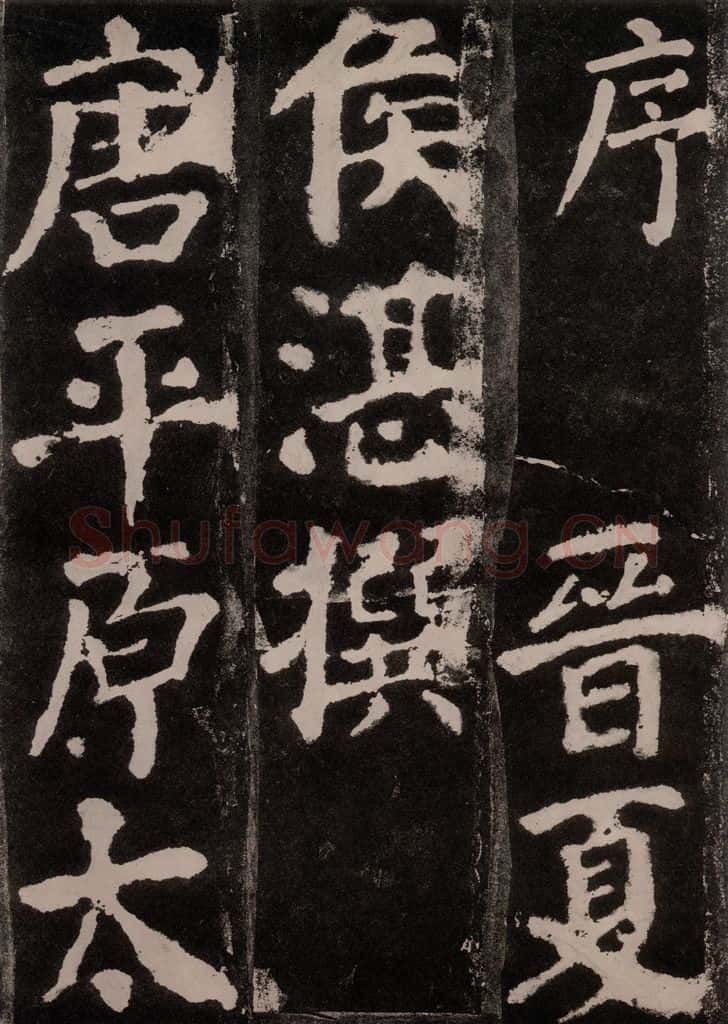 序 晉夏
侯湛撰
唐平原太
Shufawang.CN